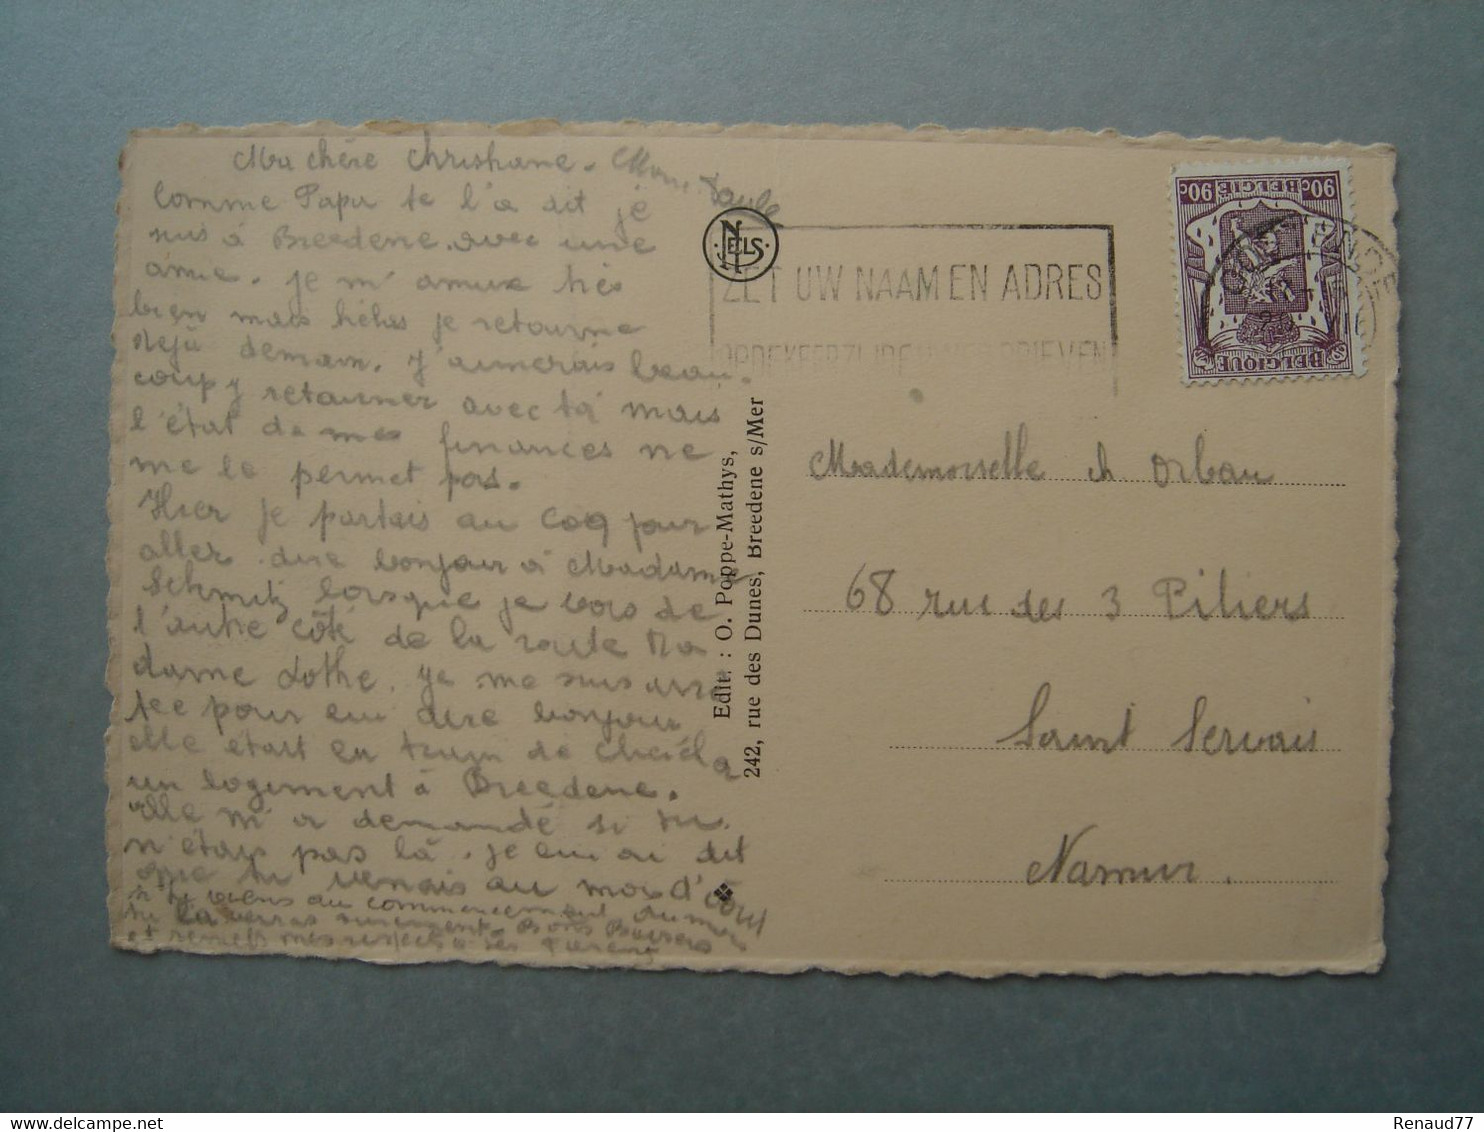 Ma chère Christiane.
Comme Papa te l'a dit je
suis à Breedene avec une
amie. Je m'amuse très
bien mais hélas je retourne
déjà demain. J'aimerais beau-
coup y retourner avec toi mais
l'état de mes finances ne
me le permet pas.
Hier je partais au Coq pour
aller dire bonjour à Madame
Schmitz lorsque je vois de
l'autre côté de la route Ma
dame Lothe. Je me suis arrê
tée pour lui dire bonjour
elle était en train de
un logement à Breedene.
elle m'a demandé si tu
n'étais pas là. Je lui ai dit
que tu venais au mois d'août
si tu viens au commencement
tu la verras surement. Bons Baisers
et remets mes respects à tes
NELS
ZET UW NAAM EN ADRES
OP DE KEERZIJDE UWER BRIEVEN
OOSTENDE
BELGIË
90c 90c
BELGIQUE
Edit. : O. Poppe-Mathys,
242, rue des Dunes, Breedene s/Mer
Mademoiselle Ch Orban
68 rue des 3 Piliers
Saint Servais
Namur.
delcampe.net
Renaud77